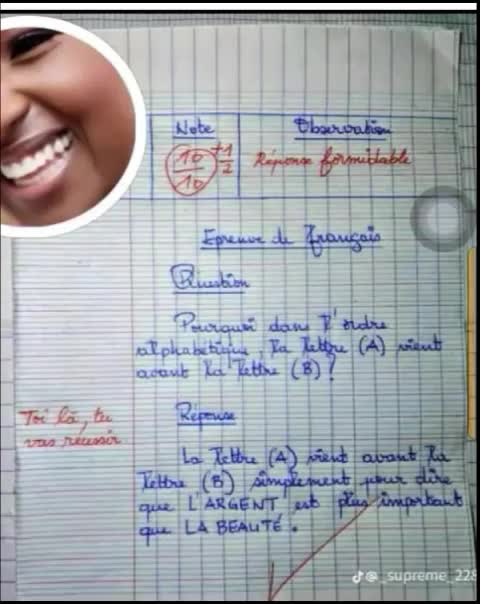 Note
Observation
10/10 +1/2
Réponse formidable
Epreuve de Français
Question
Pourquoi dans l'ordre
alphabétique, la lettre (A) vient
avant la lettre (B)?
Toi là, tu
vas réussir
Réponse
La lettre (A) vient avant la
lettre (B) simplement pour dire
que L'ARGENT est plus important
que LA BEAUTÉ.
@_supreme_228